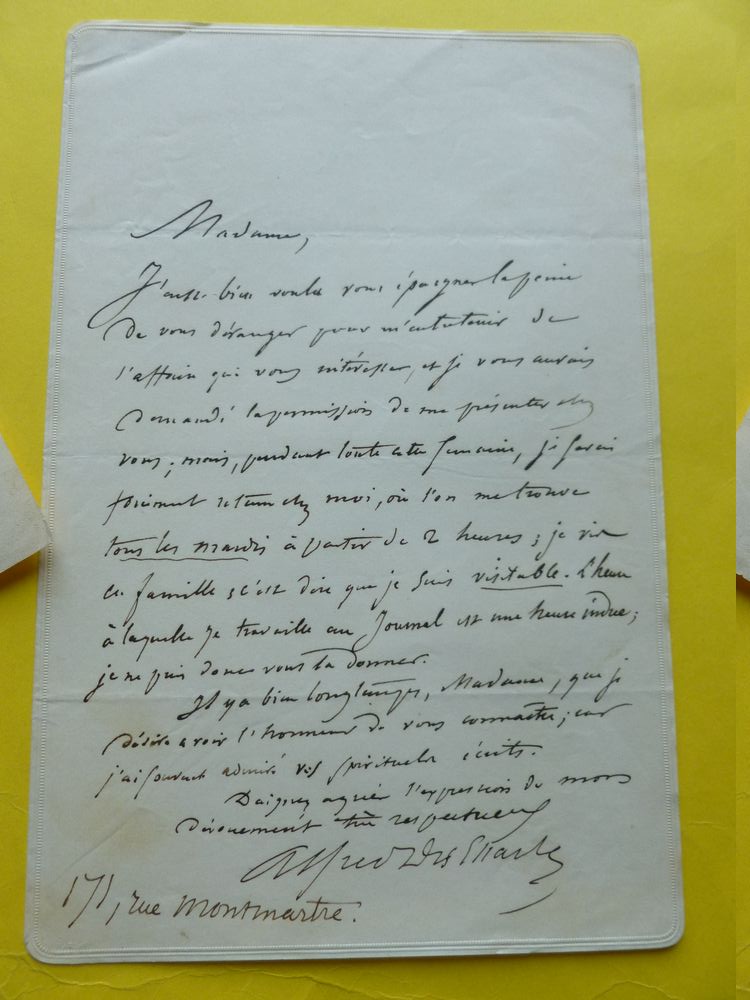 Madame,
J'eusse bien voulu vous épargner la peine
de vous déranger pour m'entretenir de
l'affaire qui vous intéresse, et je vous aurais
demandé la permission de me présenter chez
vous ; mais, pendant toute cette semaine, je serai
forcément retenu chez moi, où l'on me trouve
tous les mardis à partir de 2 heures ; je vis
en famille ; c'est dire que je suis visitable. L'heure
à laquelle je travaille au Journal est une heure indue ;
je ne puis donc vous la donner.
Il y a bien longtemps, Madame, que je
désire avoir l'honneur de vous connaître ; car
j'ai souvent admiré vos spirituels écrits.
Daignez agréer l'expression de mon
dévouement très respectueux
Alfred des Essarts
171, rue Montmartre.